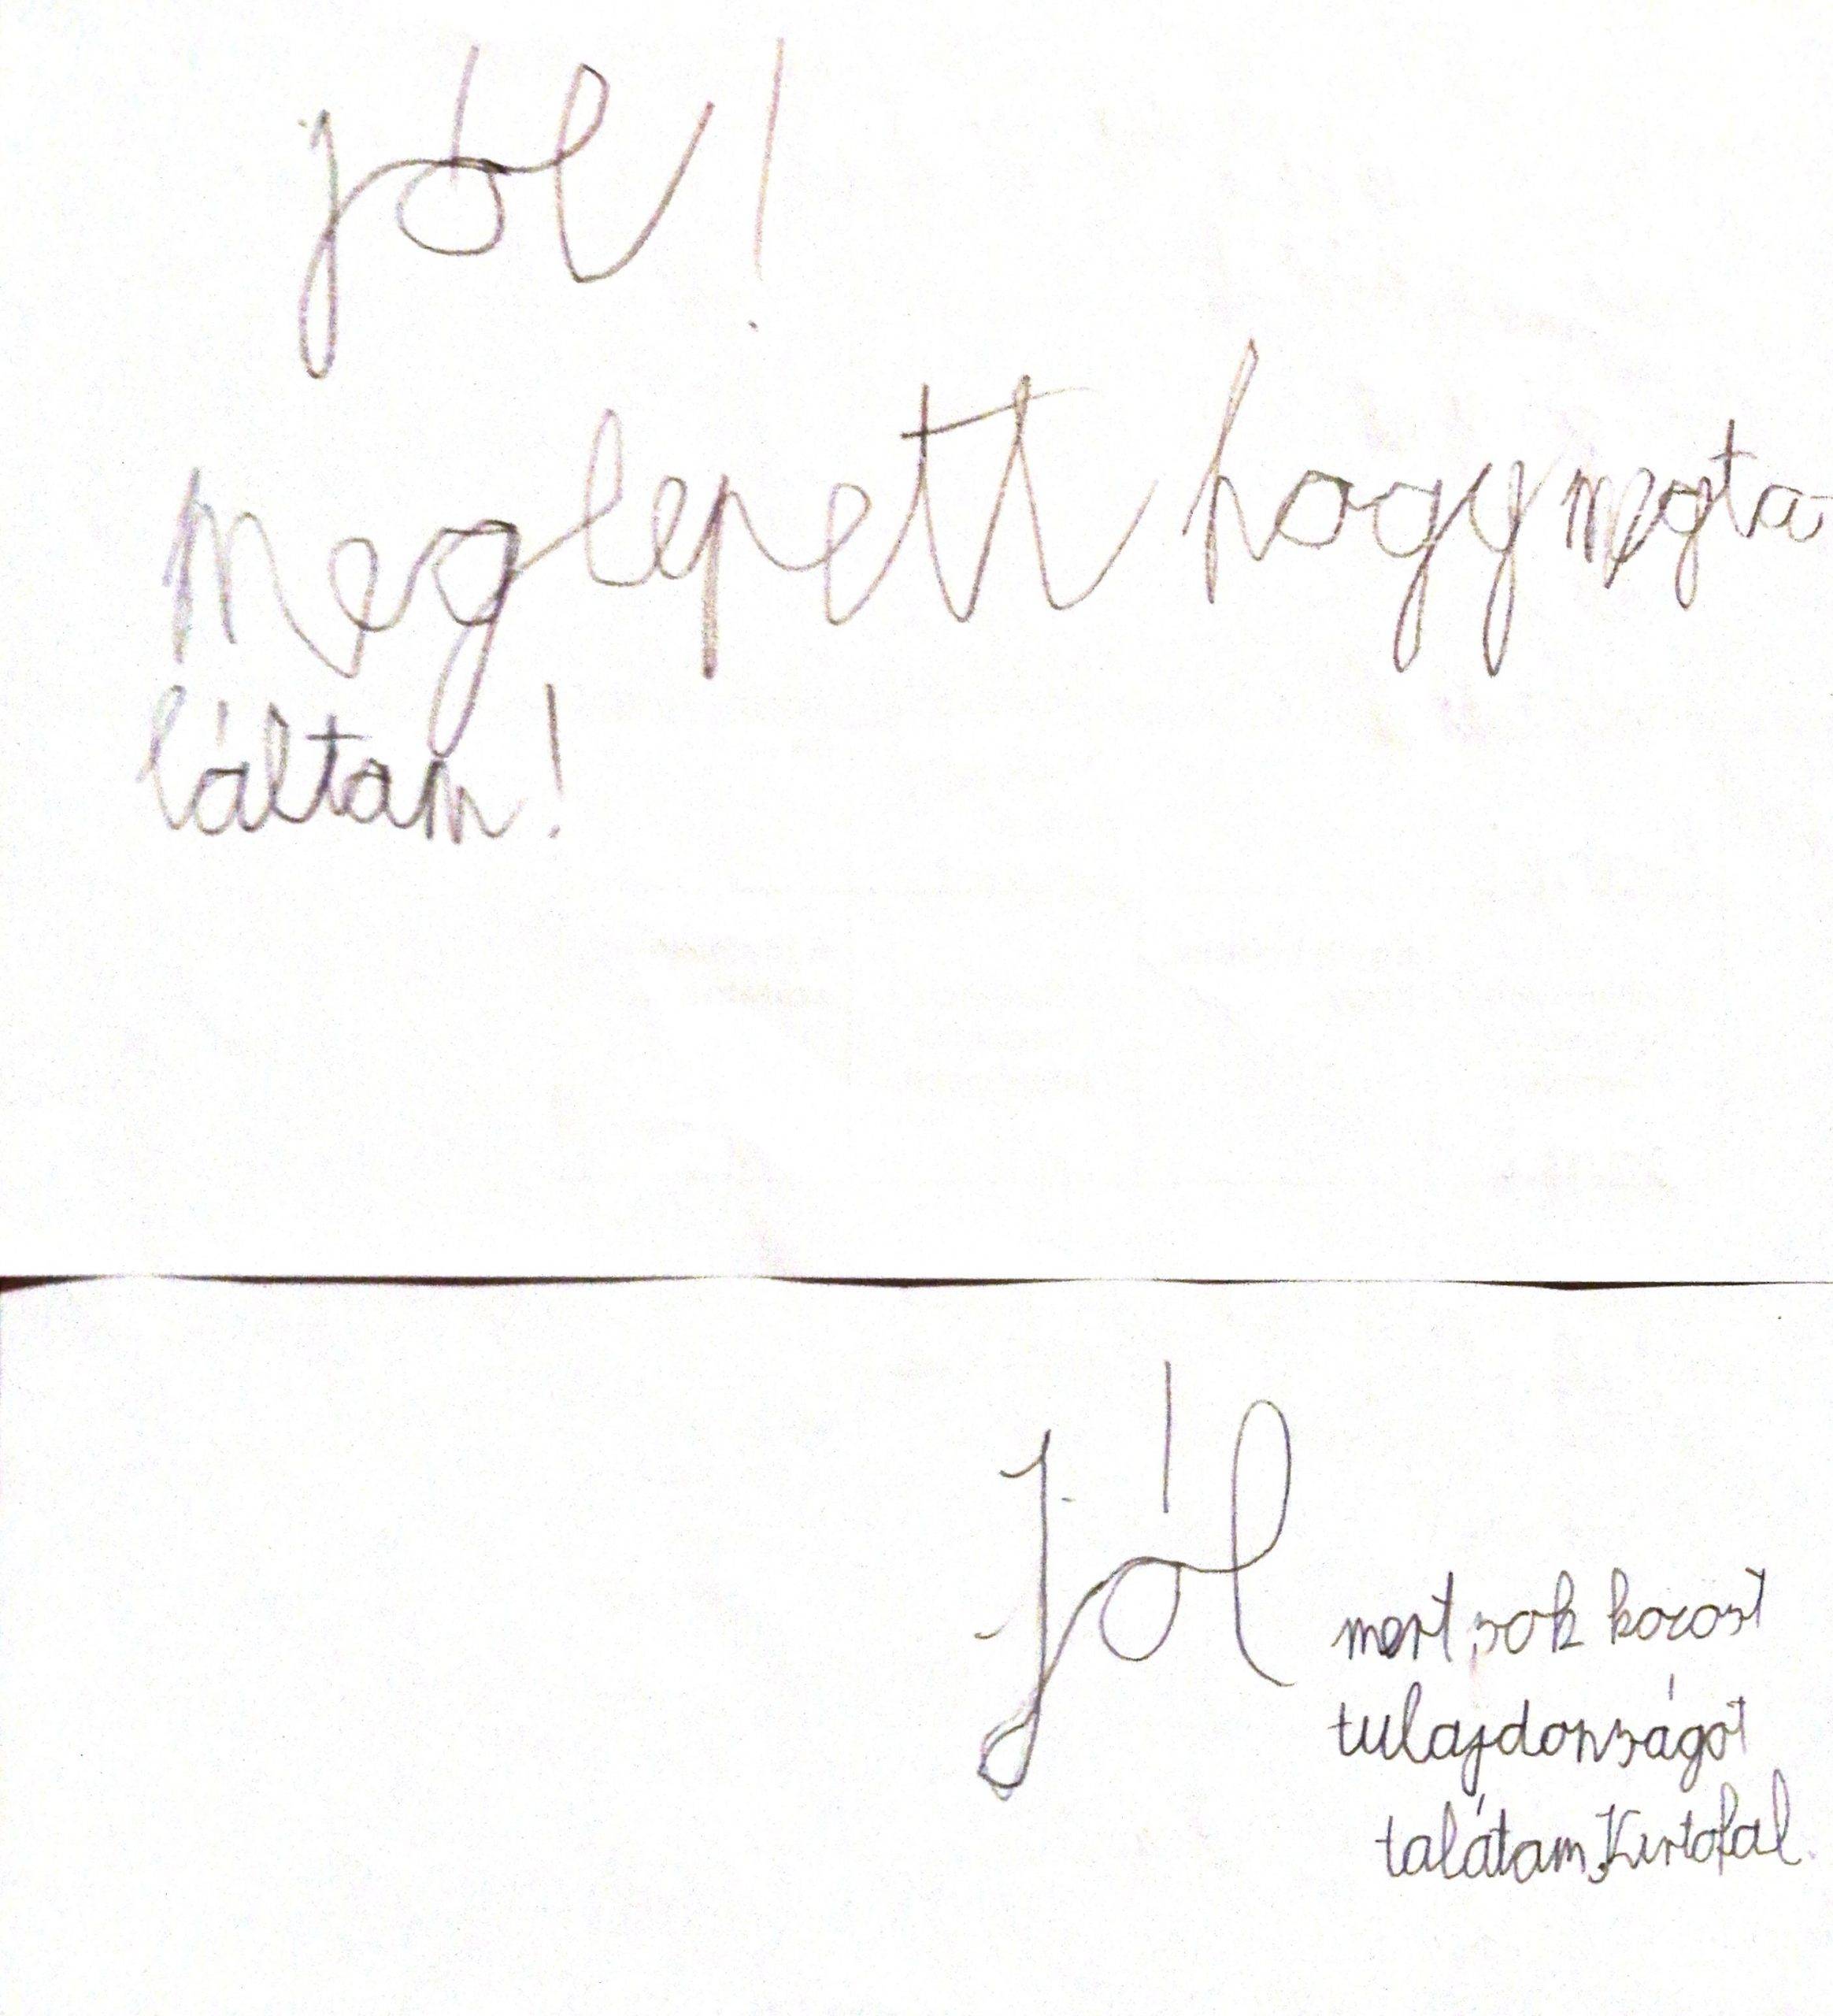 jól!
Meglepett hogy megta-
láltam!
Jól
mert sok kozost
tulajdonságot
talátam